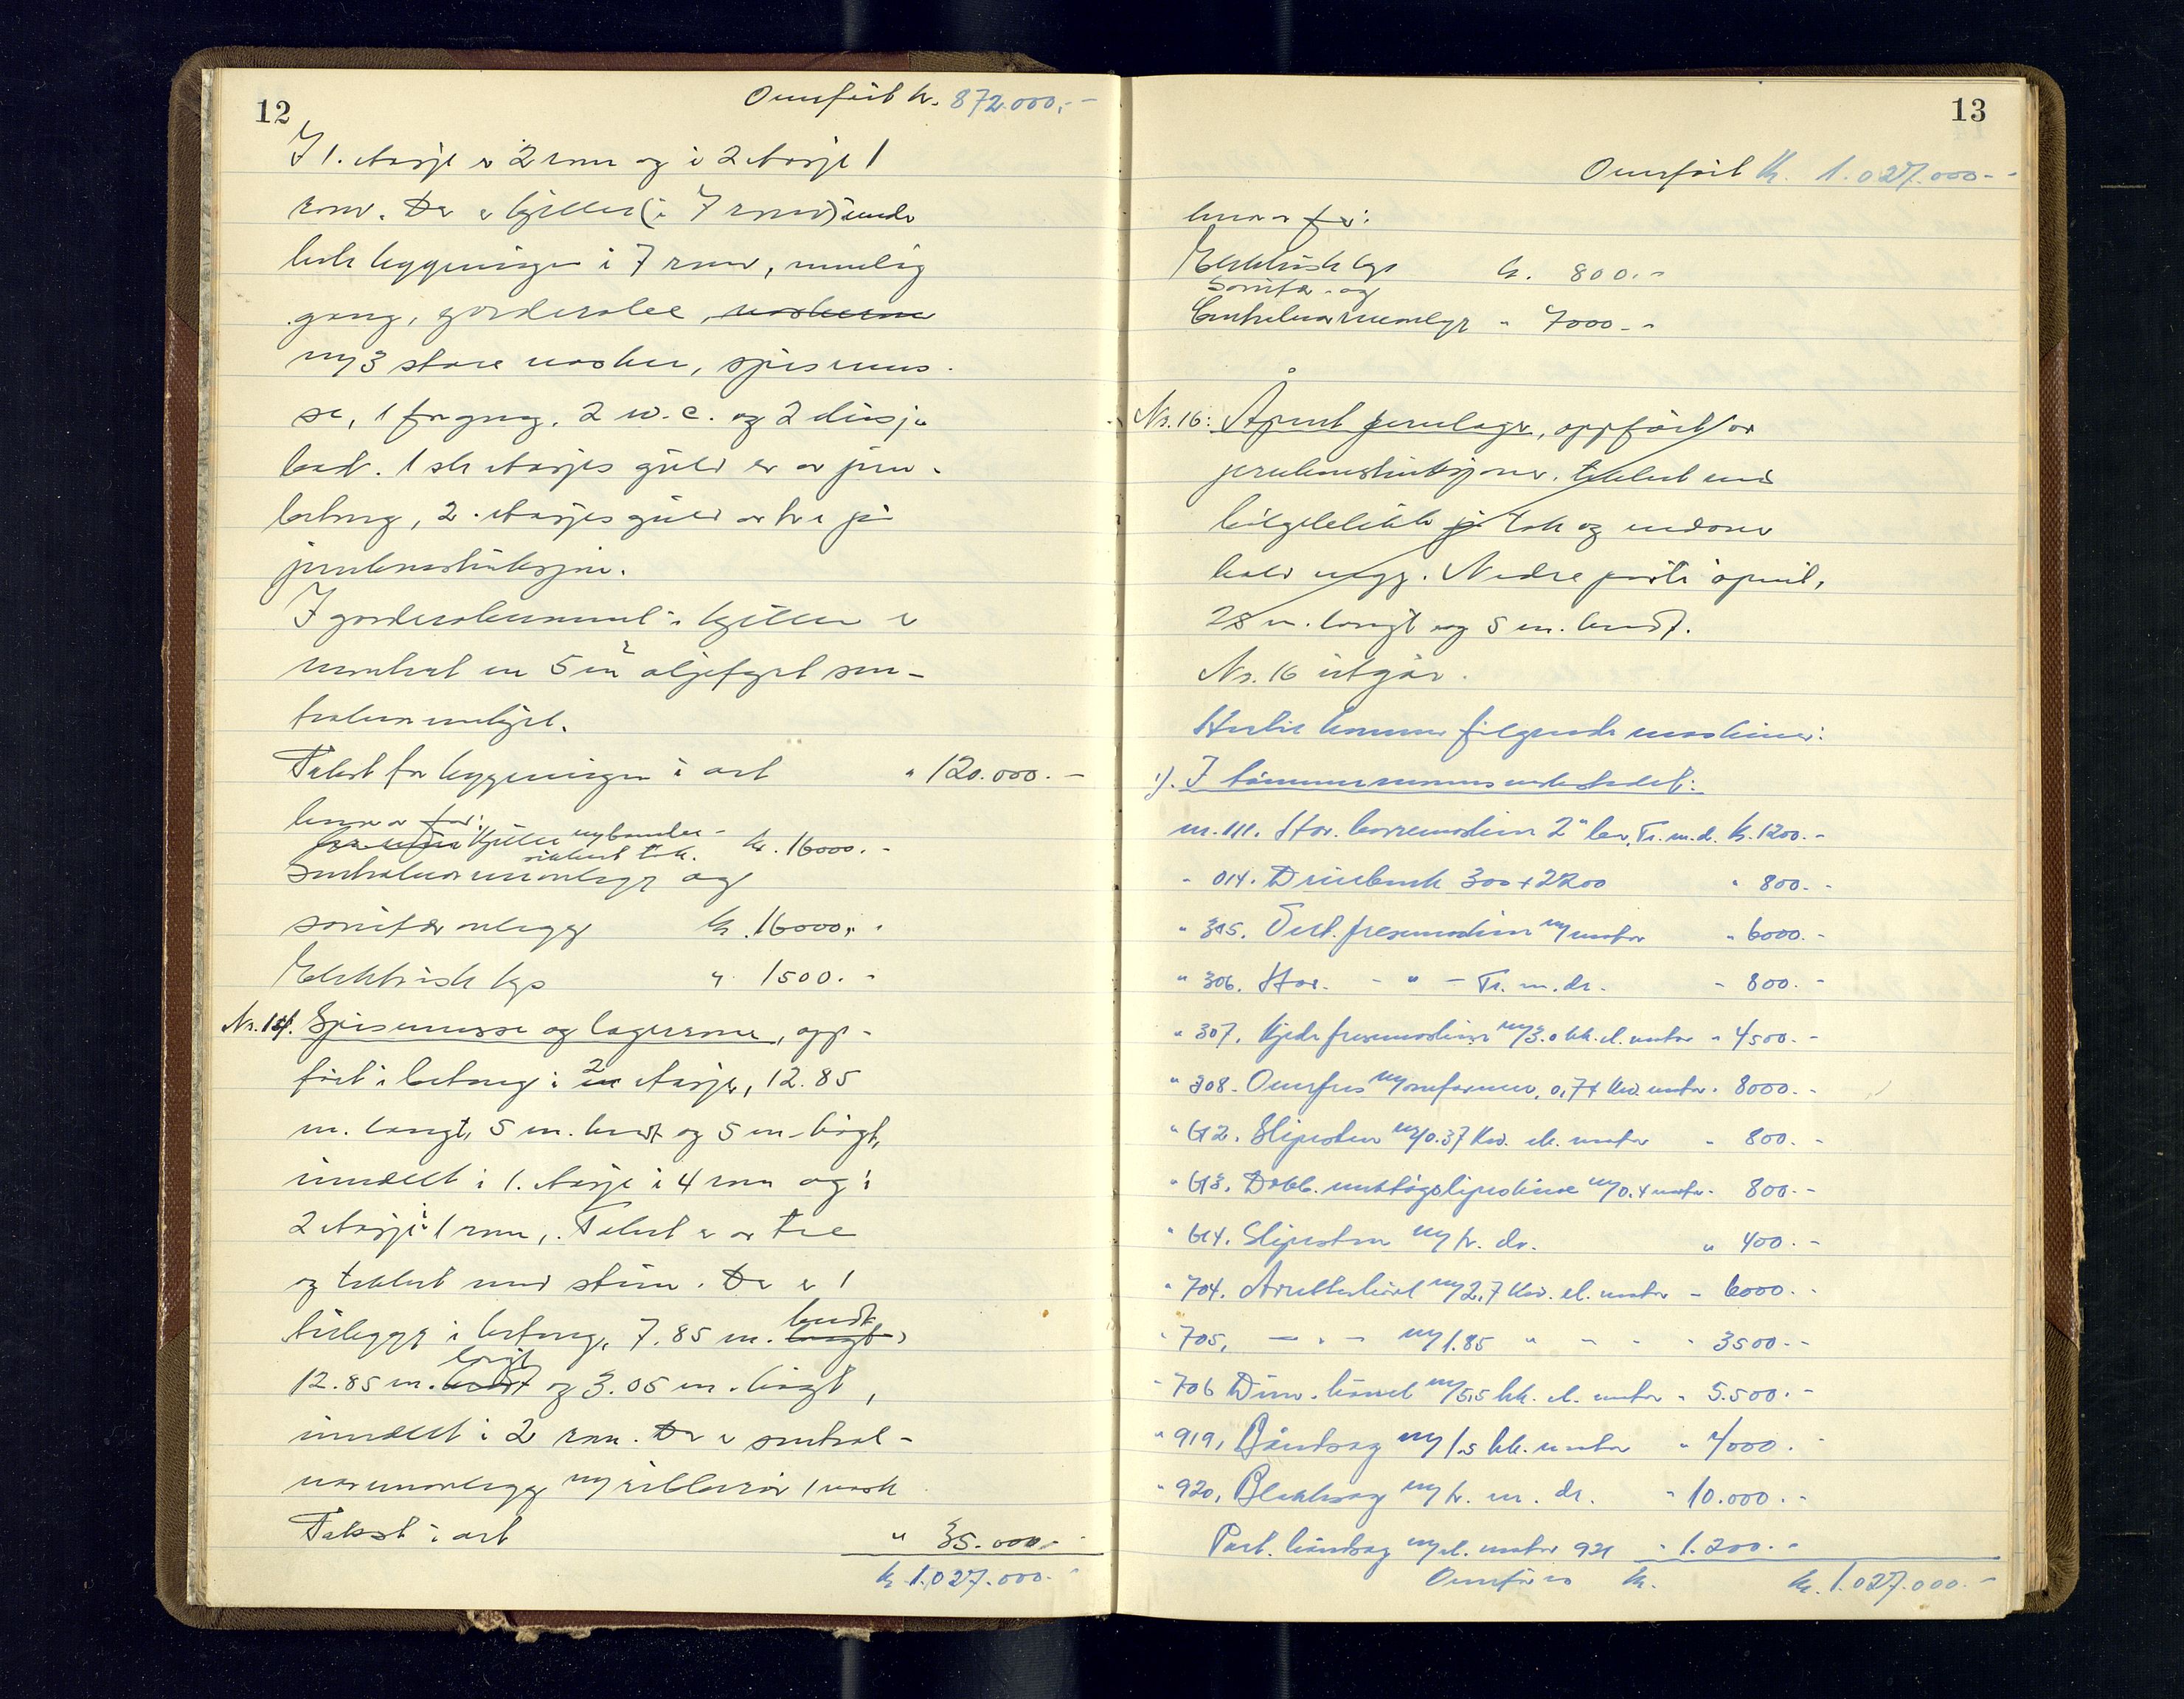 12
Overført kr. 872.000.-
I 1. etasje er 2 rom og i 2 etasje 1
rom. Der er kjeller (i 7 rom) under
hele bygningen i 7 rom, nemlig
gang, garderobe, vaskerom
m/3 store vasker, spisemes-
se, 1 fyrgang, 2 w.c. og 2 dusj-
bad. 1ste etasjes gulv er av jern-
betong, 2. etasjes gulv av tre på
jernkonstruksjon.
I garderoberummet i kjeller er
montert en 5 m2 oljefyrt sen-
tralvarmekjel.
Takst for bygningen i alt " 120.000.-
herav for:
Kjeller kr. 16000.-
Sentralvarmeanlegg og
sanitæranlegg kr. 16000.-
Elektrisk lys " 1500.-
Nr. 14. Spisemesse og lagerrom, opp-
ført i betong i 2 etasjer, 12.85
m. langt, 5 m. bredt og 5 m. høgt,
inndelt i 1. etasje i 4 rom og i
2 etasje i 1 rom. Taket er av tre
og tekket med stein. Der er 1
tilbygg i betong, 7.85 m. langt bredt,
12.85 m. bredt langt og 3.05 m. høgt,
inndelt i 2 rom. Der er sentral-
varmeanlegg m/ribberør 1 vask
Takst i alt " 35.000.-
kr. 1.027.000.-
13
Overført kr. 1.027.000.-
herav for:
Elektrisk lys kr. 800.-
Sanitær- og
Centralvarmeanlegg " 7000.-
Nr. 16: Åpent jernlager, oppført av
jernkonstruksjoner. tekket med
bølgeblikk på tak og endene
halv vegg. Nedre parti åpent,
28 m. langt og 5 m. bredt.
Nr. 16 utgår.
Hertil kommer følgende maskiner:
1). I tømmermannsverkstedet:
nr. 111. Hor. borremaskin 2" bor, Tr. m. d. kr. 1200.-
" 014. Dreiebenk 300 + 2200 " 800.-
" 305. Vert. fresemaskin m/motor " 6000.-
" 306. Hor. - " - Tr. m. dr. - 800.-
" 307. Kjede fresemaskin m/3.0 hk. el. motor " 4500.-
" 308. Overfres m/omformer, 0,74 kw. motor " 8000.-
" 612. Slipesten m/0.37 kw. el. motor " 800.-
" 613. Dobb. verktøyslipeskive m/0.4 motor " 800.-
" 614. Slipesten m/tr. dr. " 400.-
" 704. Avretterhøvel m/2,7 kw. el. motor - 6000.-
" 705. - " - m/1.85 " - - " 3500.-
" 706 Dim. høvel m/5,5 hk. el. motor " 5.500.-
" 919. Båndsag m/1.5 hk. motor " 7000.-
" 920. Blokksag m/tr. m. dr. " 10.000.-
Port. håndsag m/el. motor 921 " 1.200.-
Overføres kr. kr. 1.027.000.-